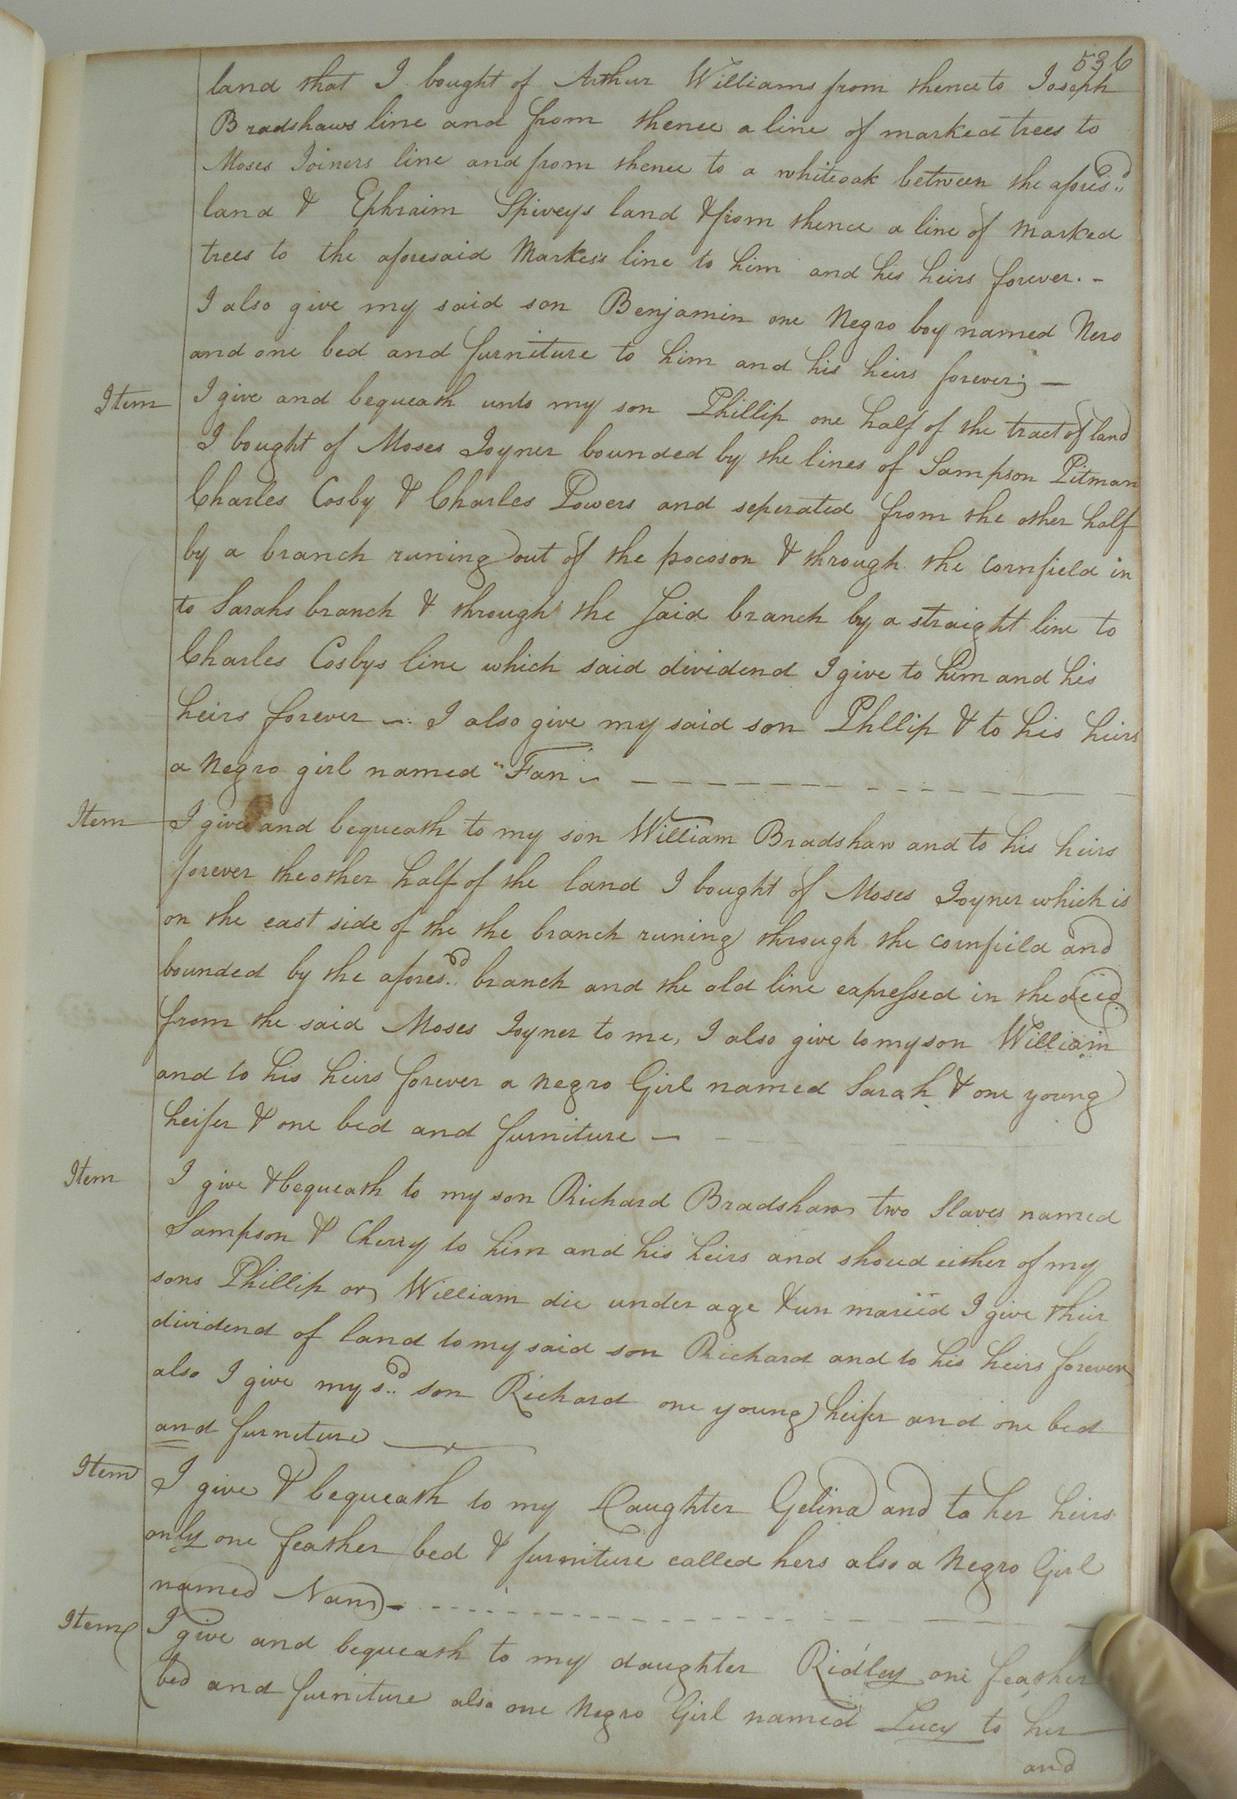 536
land that I bought of Arthur Williams from thence to Joseph
Bradshaws line and from thence a line of marked trees to
Moses Joiners line and from thence to a whiteoak between the afores.d
land & Ephraim Spiveys land & from thence a line of marked
trees to the aforesaid Markes's line to him and his heirs forever. -
I also give my said son Benjamin one Negro boy named Nero
and one bed and furniture to him and his heirs forever; —
Item I give and bequeath unto my son Phillip one half of the tract of land
I bought of Moses Joyner bounded by the lines of Sampson Pitman
Charles Cosby & Charles Powers and seperated from the other half
by a branch runing out of the pocoson & through the cornfield in
to Sarahs branch & through the said branch by a straight line to
Charles Cosbys line which said dividend I give to him and his
heirs forever ~ I also give my said son Phllip & to his heirs
a Negro girl named "Fan
Item I give and bequeath to my son William Bradshaw and to his heirs
forever the other half of the land I bought of Moses Joyner which is
on the east side of the the branch runing through the cornfield and
bounded by the afores.d branch and the old line expressed in the deed
from the said Moses Joyner to me, I also give to my son William
and to his heirs forever a negro Girl named Sarah & one young
heifer & one bed and furniture —
Item I give & bequeath to my son Richard Bradshaw two Slaves named
Sampson & Cherry to him and his heirs and shoud either of my
sons Phillip or William die under age & un maried I give their
dividend of land to my said son Richard and to his heirs forever
also I give my s.d son Richard one young heifer and one bed
and furniture
Item I give & bequeath to my Daughter Gelina and to her heirs
only one feather bed & furniture called hers also a Negro Girl
named Nan
Item I give and bequeath to my daughter Ridley one feather
bed and furniture also one Negro Girl named Lucy to her
and